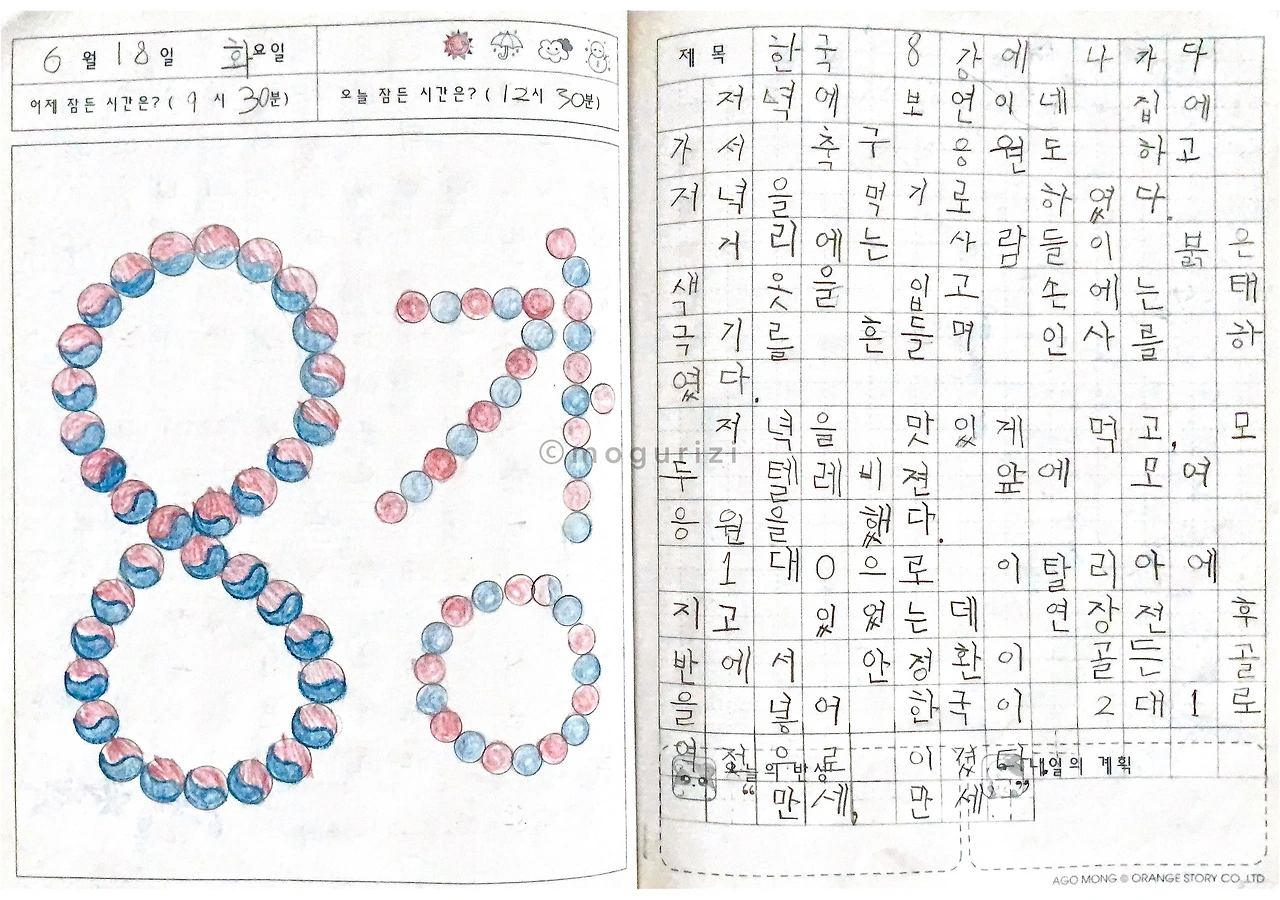 6 월 18 일 화요일
어제 잠든 시간은? ( 9 시 30분)
오늘 잠든 시간은? ( 12시 30분)
8강
©mogurizi
제 목 한국 8강에 나가다
저녁에 보연이네 집에
가서 축구 응원도 하고
저녁을 먹기로 하였다.
거리에는 사람들이 붉은
색 옷을 입고 손에는 태
극기를 흔들며 인사를 하
였다.
저녁을 맛있게 먹고, 모
두 텔레비젼 앞에 모여
응원을 했다.
1대0으로 이탈리아에
지고 있었는데 연장전 후
반에서 안정환이 골든 골
을 넣어 한국이 2대1로
역전으로 이겼다.
“만세, 만세”
오늘의 반성
내일의 계획
AGO MONG © ORANGE STORY CO. LTD